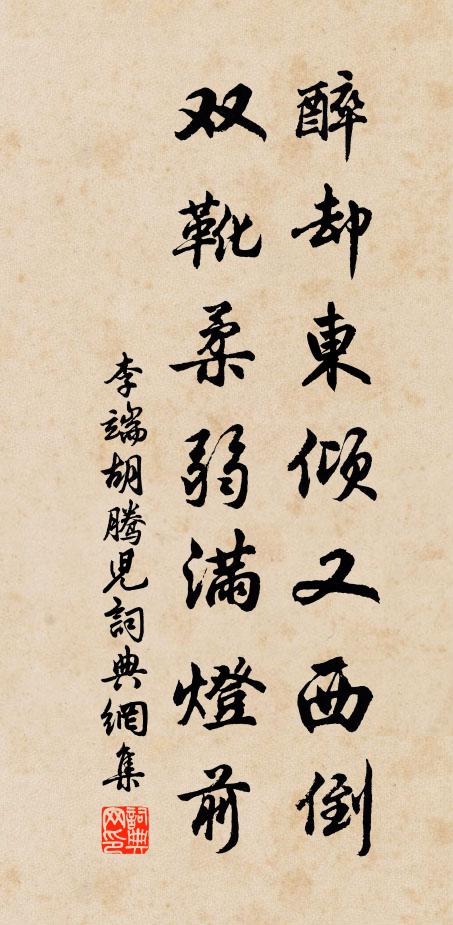 醉却東傾又西倒
双靴柔弱滿燈前
李端胡騰児詞典網集
詞典网印